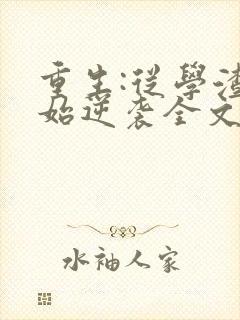 重生:从學渣
始逆袭全文
水袖人家